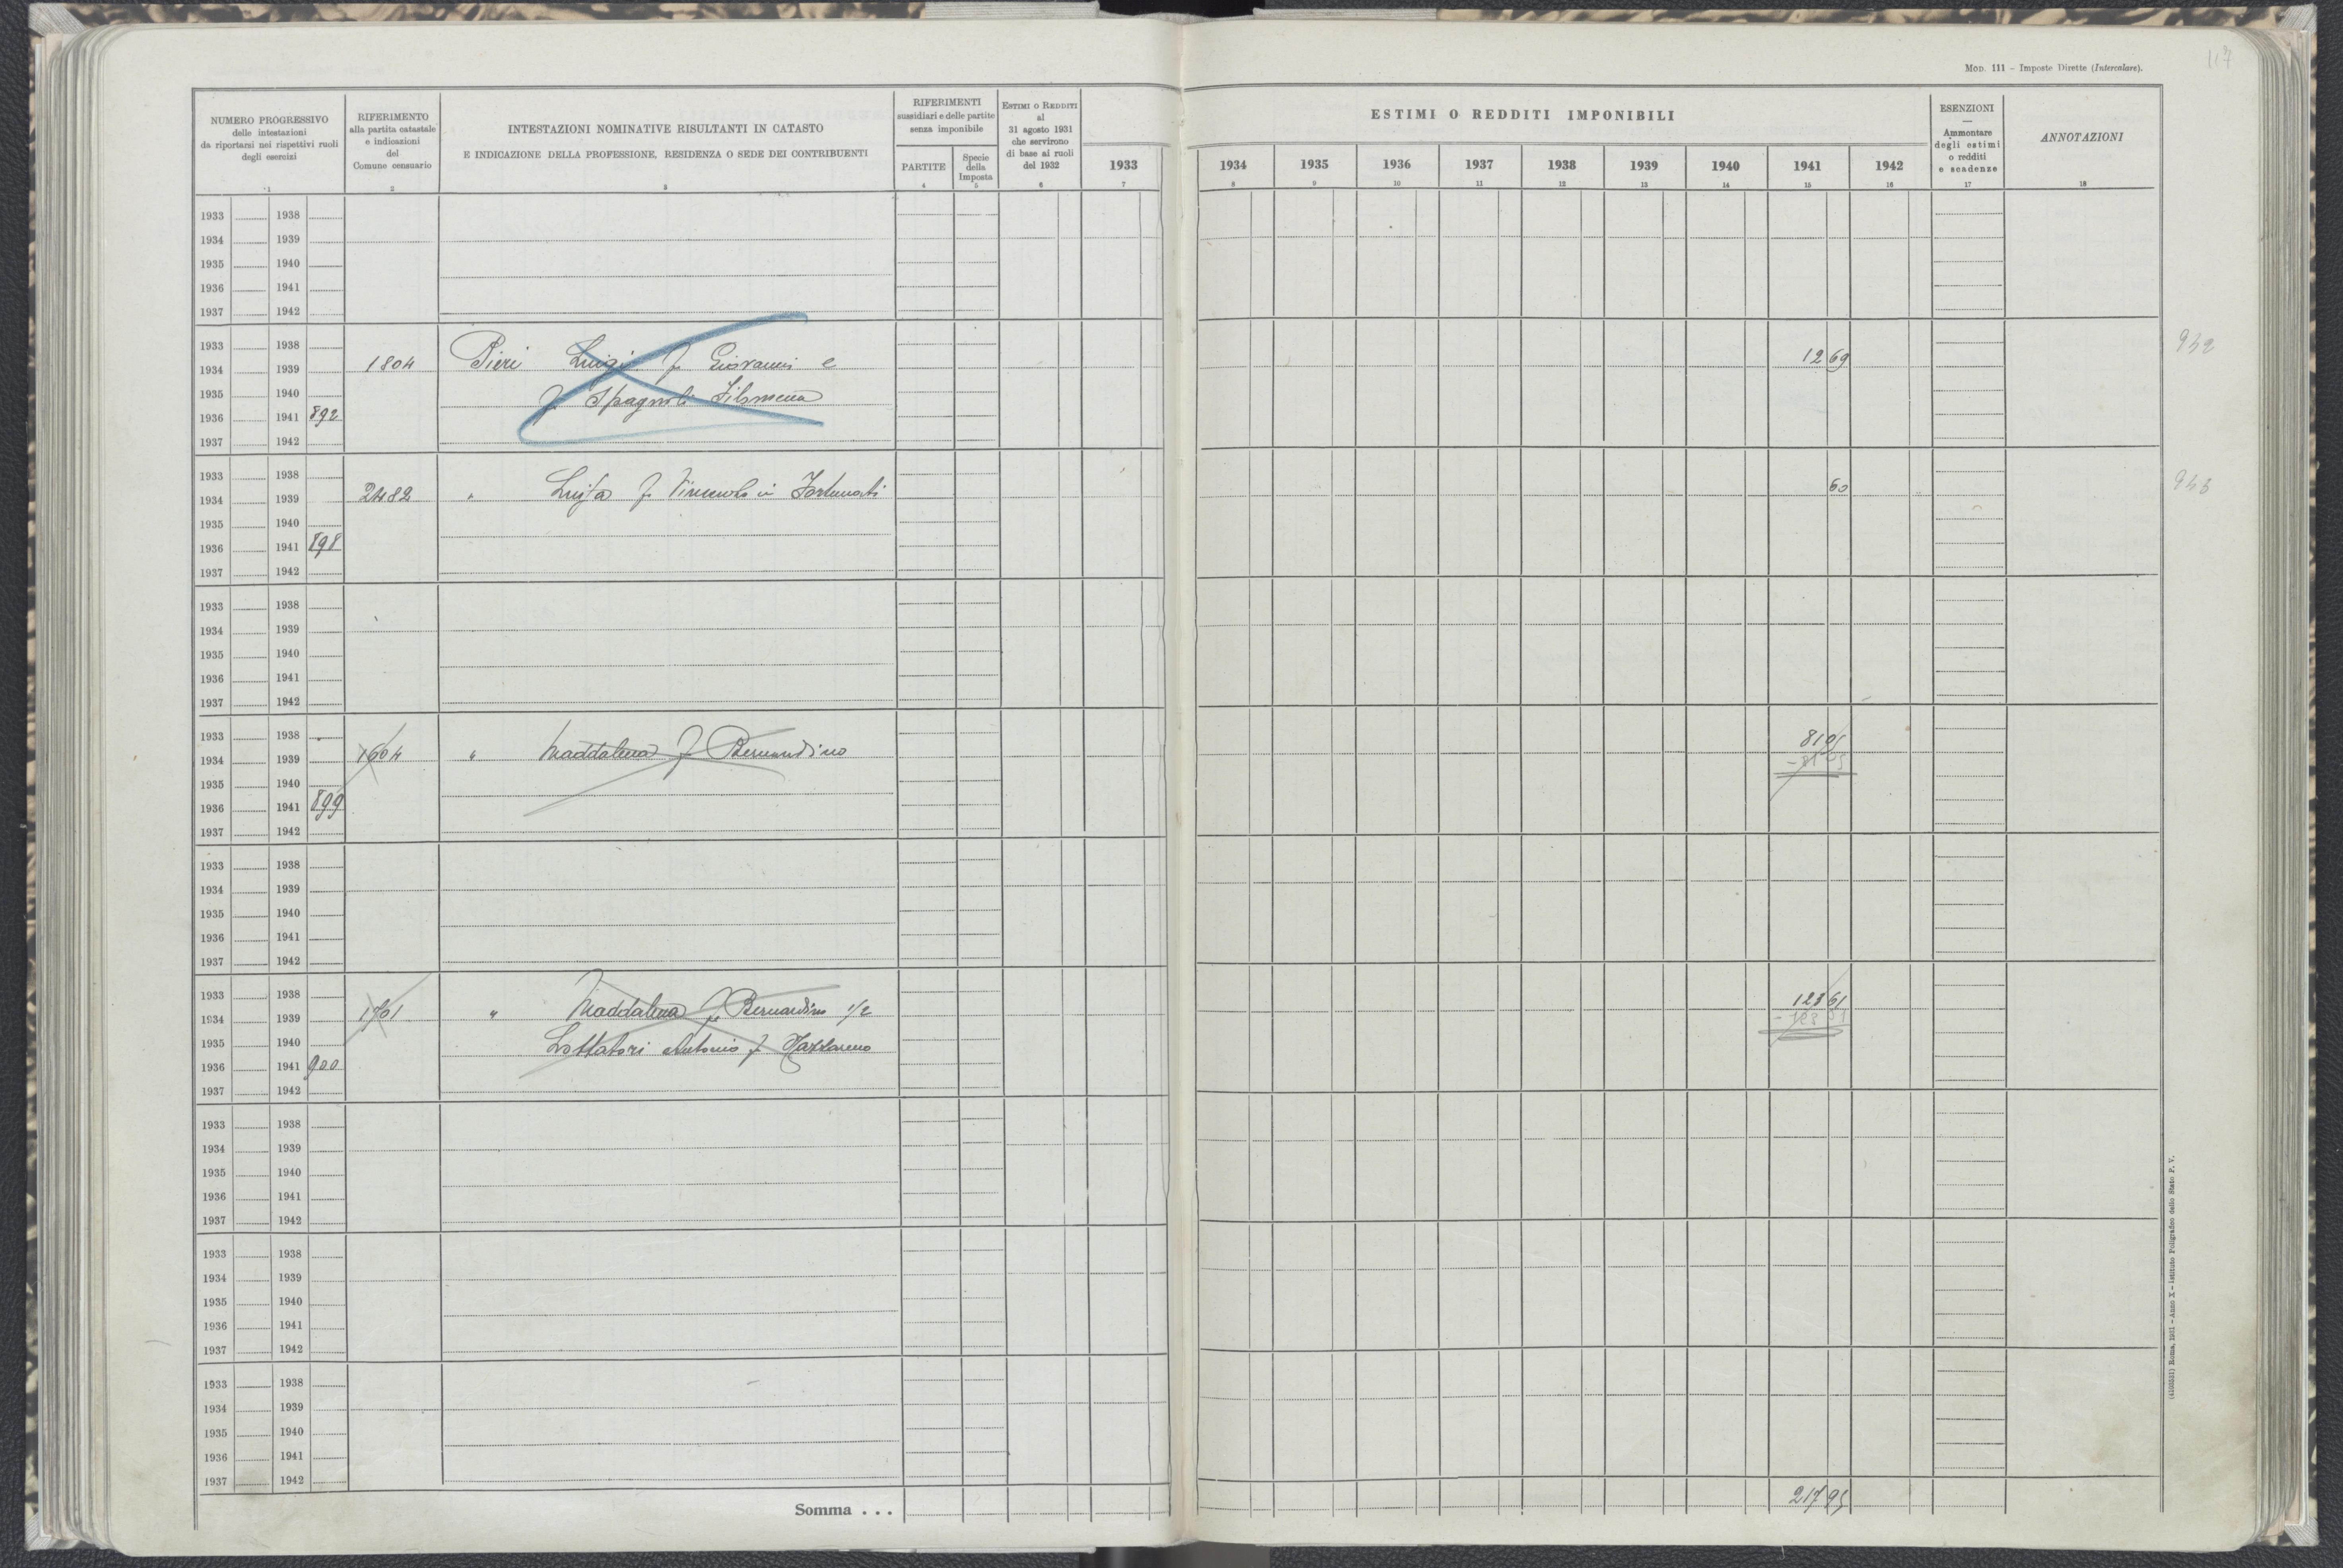 117
MOD. 111 – Imposte Dirette (Intercalare).
NUMERO PROGRESSIVO
delle intestazioni
da riportarsi nei rispettivi ruoli
degli esercizi
1
RIFERIMENTO
alla partita catastale
e indicazioni
del
Comune censuario
2
INTESTAZIONI NOMINATIVE RISULTANTI IN CATASTO
E INDICAZIONE DELLA PROFESSIONE, RESIDENZA O SEDE DEI CONTRIBUENTI
3
RIFERIMENTI
sussidiari e delle partite
senza imponibile
PARTITE
4
Specie
della
Imposta
5
ESTIMI O REDDITI
al
31 agosto 1931
che servirono
di base ai ruoli
del 1932
6
ESTIMI O REDDITI IMPONIBILI
1933 1934 1935 1936 1937 1938 1939 1940 1941 1942
7 8 9 10 11 12 13 14 15 16
ESENZIONI
—
Ammontare
degli estimi
o redditi
e scadenze
17
ANNOTAZIONI
18
1933 1938
1934 1939
1935 1940
1936 1941
1937 1942
1933 1938
1934 1939 1804 Pieri Luigi f Giovanni e 12 69 942
1935 1940 f Spagnoli Filomena
1936 1941 892
1937 1942
1933 1938
1934 1939 2482 " Luisa f Vincenzo in Fortunati 60 943
1935 1940
1936 1941 898
1937 1942
1933 1938
1934 1939
1935 1940
1936 1941
1937 1942
1933 1938
1934 1939 1604 " Maddalena f Bernardino 81 05
1935 1940 - 81 05
1936 1941 899
1937 1942
1933 1938
1934 1939
1935 1940
1936 1941
1937 1942
1933 1938
1934 1939 1701 " Maddalena f Bernardino 1/2 123 61
1935 1940 Lottatori Antonio f Nazzareno
1936 1941 900
1937 1942
1933 1938
1934 1939
1935 1940
1936 1941
1937 1942
1933 1938
1934 1939
1935 1940
1936 1941
1937 1942
1933 1938
1934 1939
1935 1940
1936 1941
1937 1942
Somma . . . 217 95
Roma, 1931 – Anno X – Istituto Poligrafico dello Stato P. V.